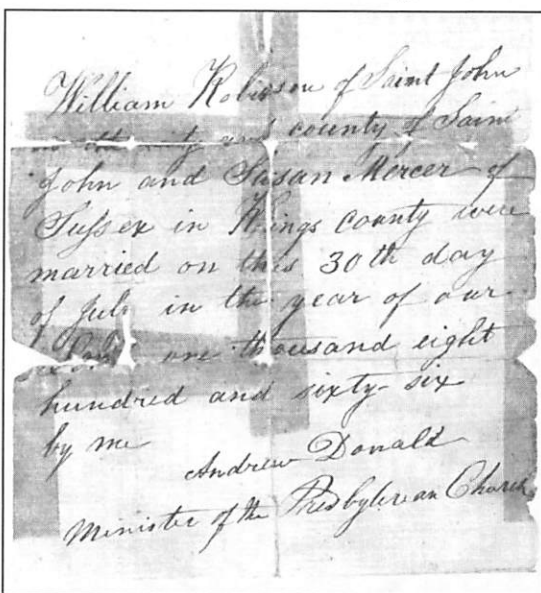 William Robinson of Saint John
city and county of Saint
John and Susan Mercer of
Sussex in Kings county were
married on this 30th day
of July in the year of our
Lord one thousand eight
hundred and sixty-six
by me
Andrew Donald
Minister of the Presbyterean Church